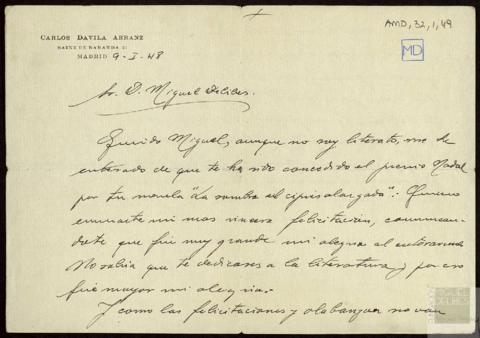 AMD, 32, 1, 49
MD
CARLOS DAVILA ARRANZ
SAINZ DE BARANDA 21
MADRID 9-I-48
Sr. D. Miguel Delibes.
Querido Miguel, aunque no soy literato, me he
enterado de que te ha sido concedido el premio Nadal
por tu novela "La sombra del cipres alargada". Quiero
enviarte mi mas sincera felicitación, comunican-
dote que fue muy grande mi alegria al enterarme
No sabia que te dedicases a la literatura y por eso
fue mayor mi alegria.
Y como las felicitaciones y alabanzas no van
MIGUEL
DELIBES